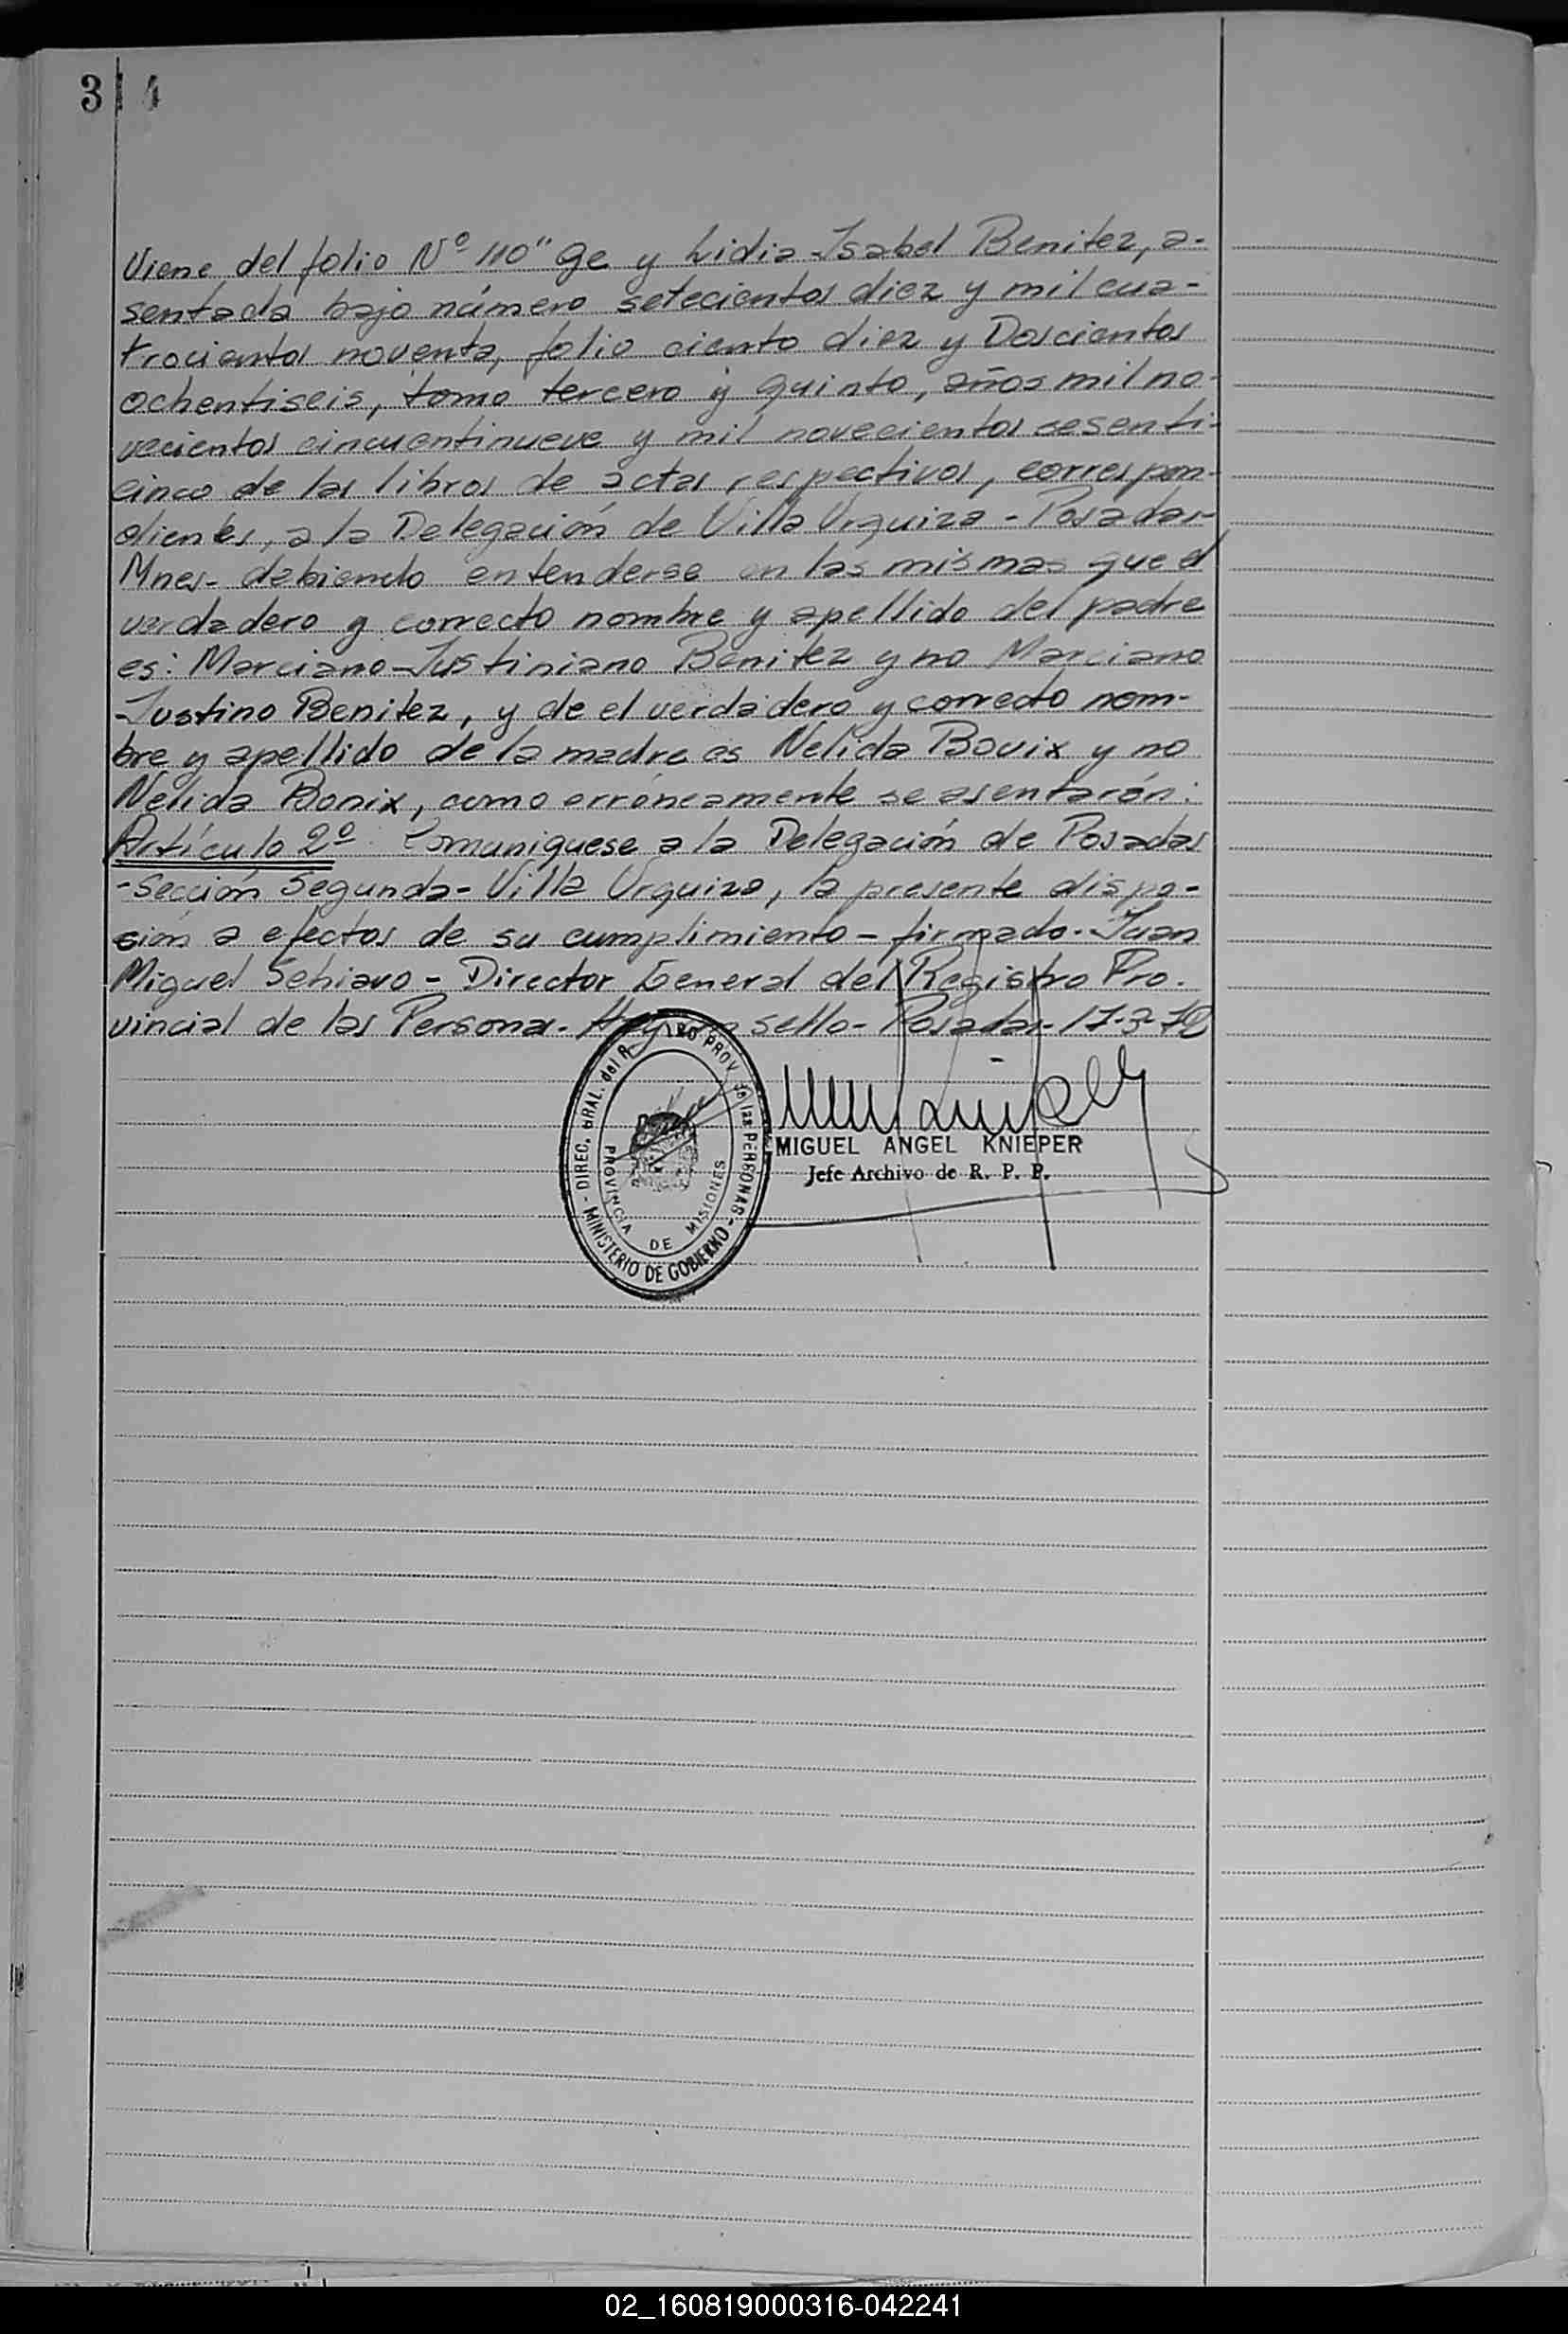 314
Viene del folio Nº 110" ge y Lidia Isabel Benitez, a-
sentada bajo número setecientos diez y mil cua-
trocientos noventa, folio ciento diez y Doscientos
ochentiseis, tomo tercero y quinto, años mil no-
vecientos cincuentinueve y mil novecientos sesenti-
cinco de los libros de actas respectivos, correspon-
dientes, a la Delegación de Villa Urquiza - Posadas-
Mnes- debiendo entenderse en las mismas que el
verdadero y correcto nombre y apellido del padre
es: Marciano Justiniano Benitez y no Marciano
Justino Benitez, y de el verdadero y correcto nom-
bre y apellido de la madre es Nelida Bouix y no
Nelida Bonix, como erróneamente se asentarón:
Artículo 2º Comuniquese a la Delegación de Posadas
-Sección Segunda- Villa Urquiza, la presente dispo-
sión a efectos de su cumplimiento - firmado. Juan
Miguel Schiavo - Director General del Registro Pro.
vincial de las Personas - Hay un sello - Posadas 17-3-72
DIREC. GRAL. del R PROV de las PERSONAS
PROVINCIA DE MISIONES
- MINISTERIO DE GOBIERNO -
MIGUEL ANGEL KNIEPER
Jefe Archivo de R. P. P.
02_160819000316-042241